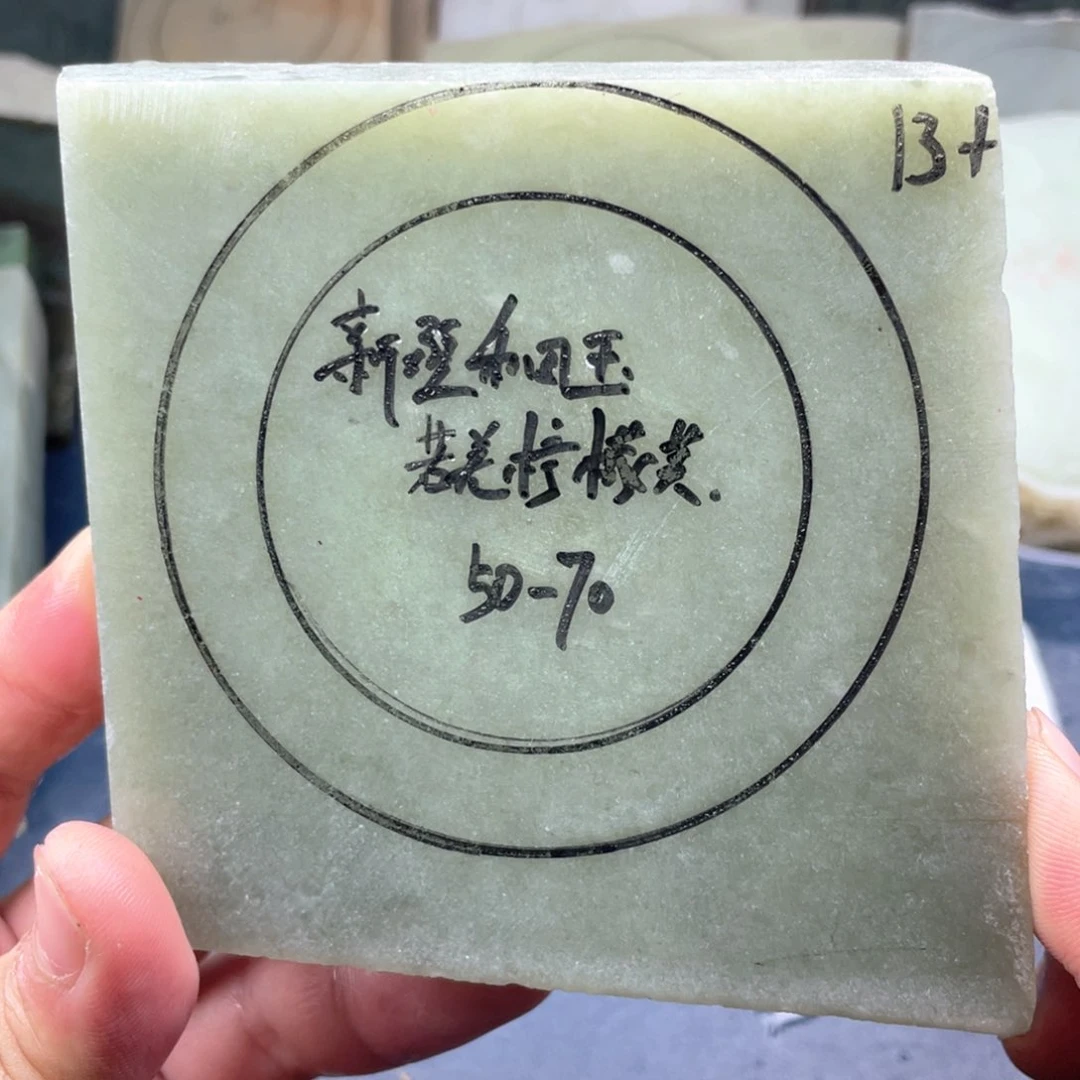 13+
新疆和田玉
若羌柠檬黄.
50-70